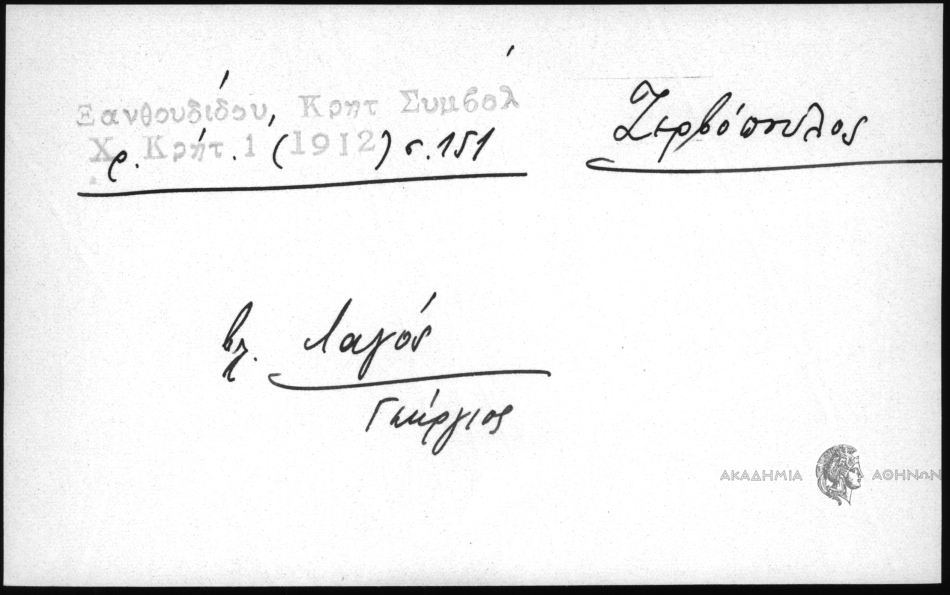 Ξανθουδίδου, Κρητ Συμβόλ
Χρ. Κρήτ. 1 (1912) σ. 151
Ζερβόπουλος
βλ. Λαγός
Γεώργιος
ΑΚΑΔΗΜΙΑ ΑΘΗΝΩΝ